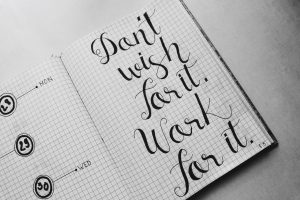 28
MON
29
30
WED
Don't
wish
for it.
Work
for it.